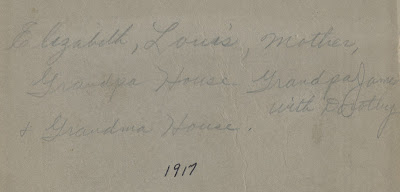 Elizabeth, Louis, Mother,
Grandpa House Grandpa Jane
with Dorothy
& Grandma House.
1917